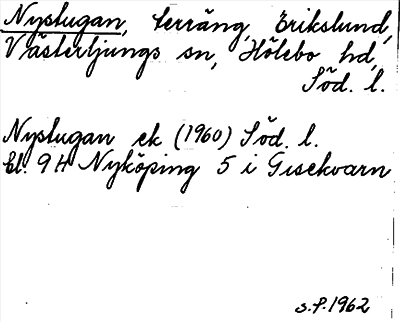 Nystugan, terräng, Erikslund,
Västerljungs sn, Hölebo hd,
Söd. l.
Nystugan ek (1960) Söd. l.
bl. 9H Nyköping 5 i Gisekvarn
s.f. 1962